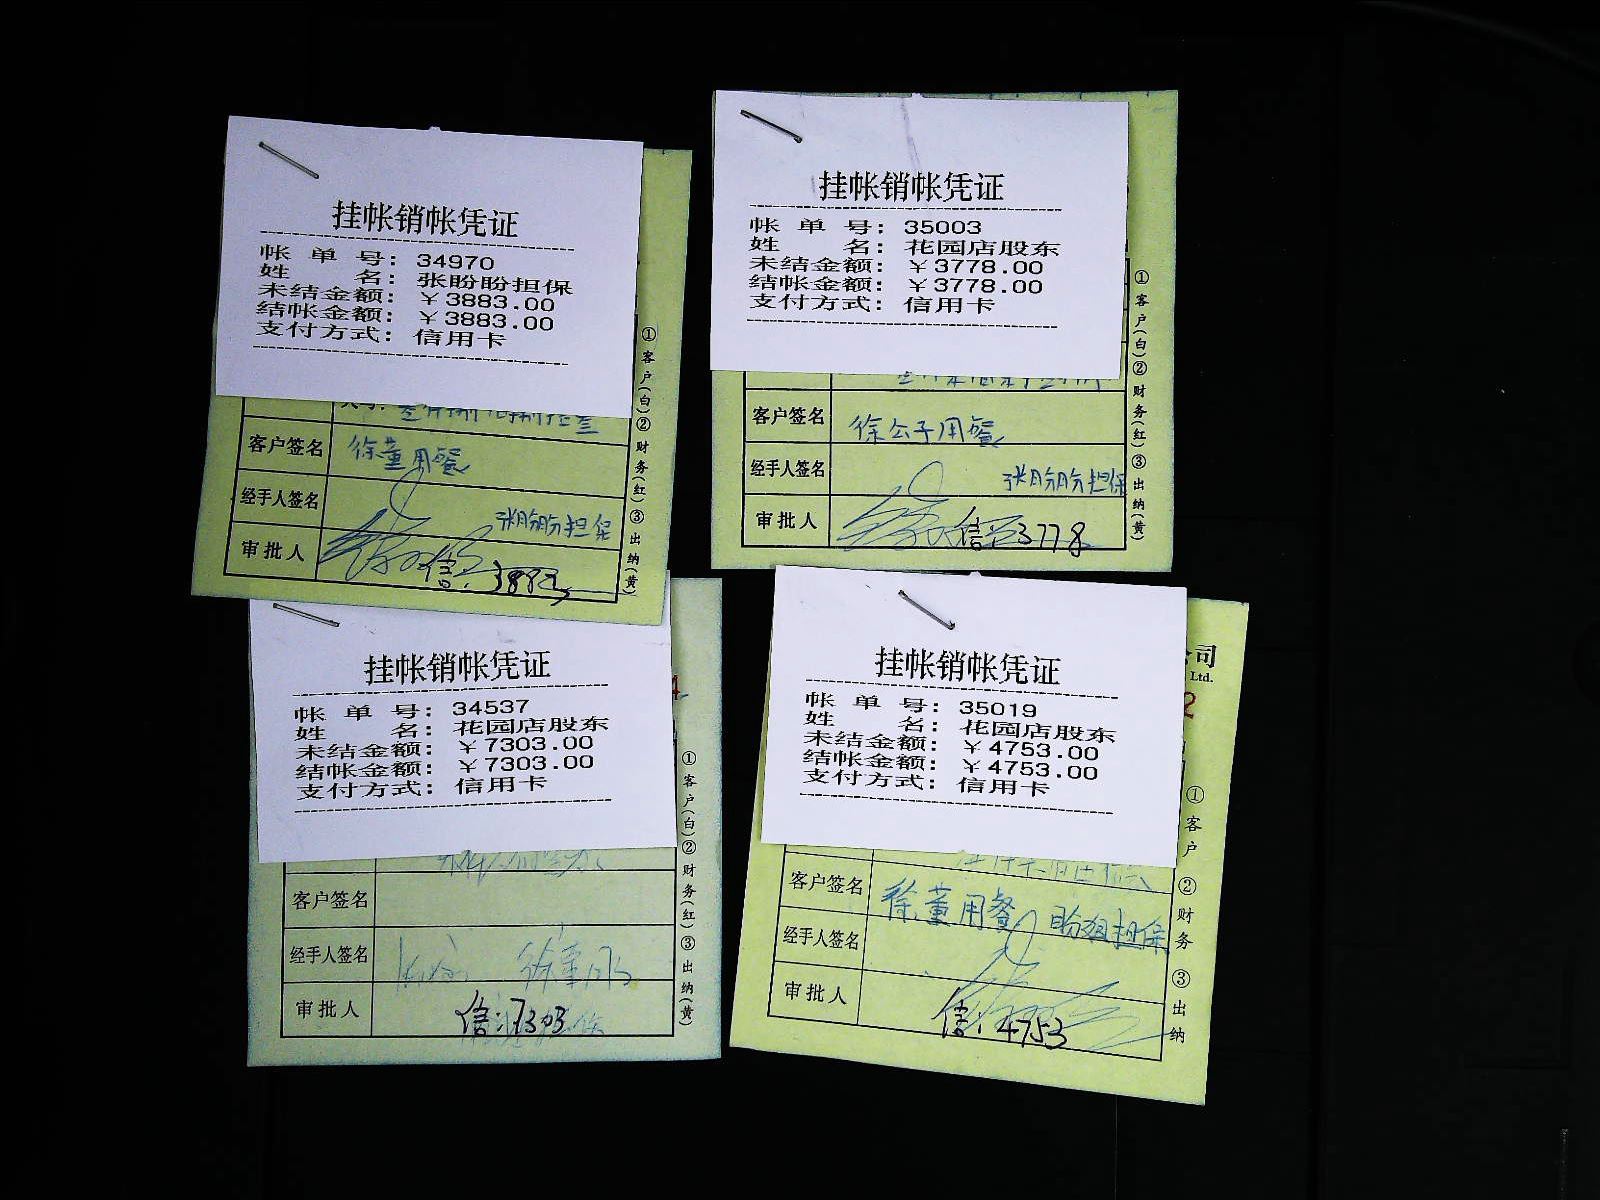 挂帐销帐凭证
帐单号：34970
姓名：张盼盼担保
未结金额：￥3883.00
结帐金额：￥3883.00
支付方式：信用卡
客户签名 徐董用餐
经手人签名 张盼盼担保
审批人 信：3883
①客户(白)②财务(红)③出纳(黄)
挂帐销帐凭证
帐单号：35003
姓名：花园店股东
未结金额：￥3778.00
结帐金额：￥3778.00
支付方式：信用卡
客户签名 徐公子用餐
经手人签名 张盼盼担保
审批人 信 3778
①客户(白)②财务(红)③出纳(黄)
挂帐销帐凭证
帐单号：34537
姓名：花园店股东
未结金额：￥7303.00
结帐金额：￥7303.00
支付方式：信用卡
客户签名
经手人签名
审批人 信：7303
①客户(白)②财务(红)③出纳(黄)
司
Ltd.
2
挂帐销帐凭证
帐单号：35019
姓名：花园店股东
未结金额：￥4753.00
结帐金额：￥4753.00
支付方式：信用卡
客户签名 徐董用餐 盼姐担保
经手人签名
审批人 信：4753
①客户②财务③出纳